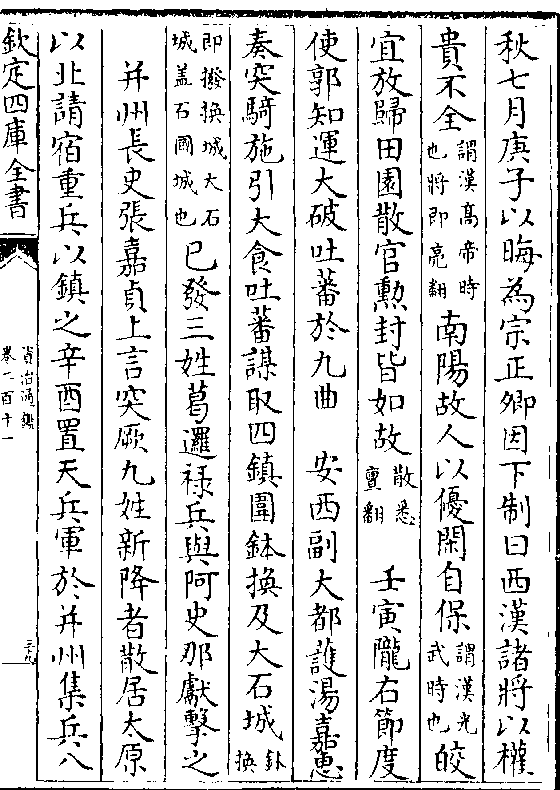 秋七月庚子以晦為宗正卿因下制曰西漢諸將以權
貴不全謂漢髙帝時也將即亮翻南陽故人以優閑自保謂漢光武時也皎
宜放歸田園散官勲封皆如故散悉亶翻 壬寅隴右節度
使郭知運大破吐蕃於九曲 安西副大都䕶湯嘉惠
奏突騎施引大食吐蕃謀取四鎮圍鉢換及大石城鉢換
即撥換城大石城盖石國城也已發三姓葛邏禄兵與阿史那獻擊之
并州長史張嘉貞上言突厥九姓新降者散居太原
以北請宿重兵以鎮之辛酉置天兵軍於并州集兵八
欽定四庫全書
資治通鑑
卷二百十一